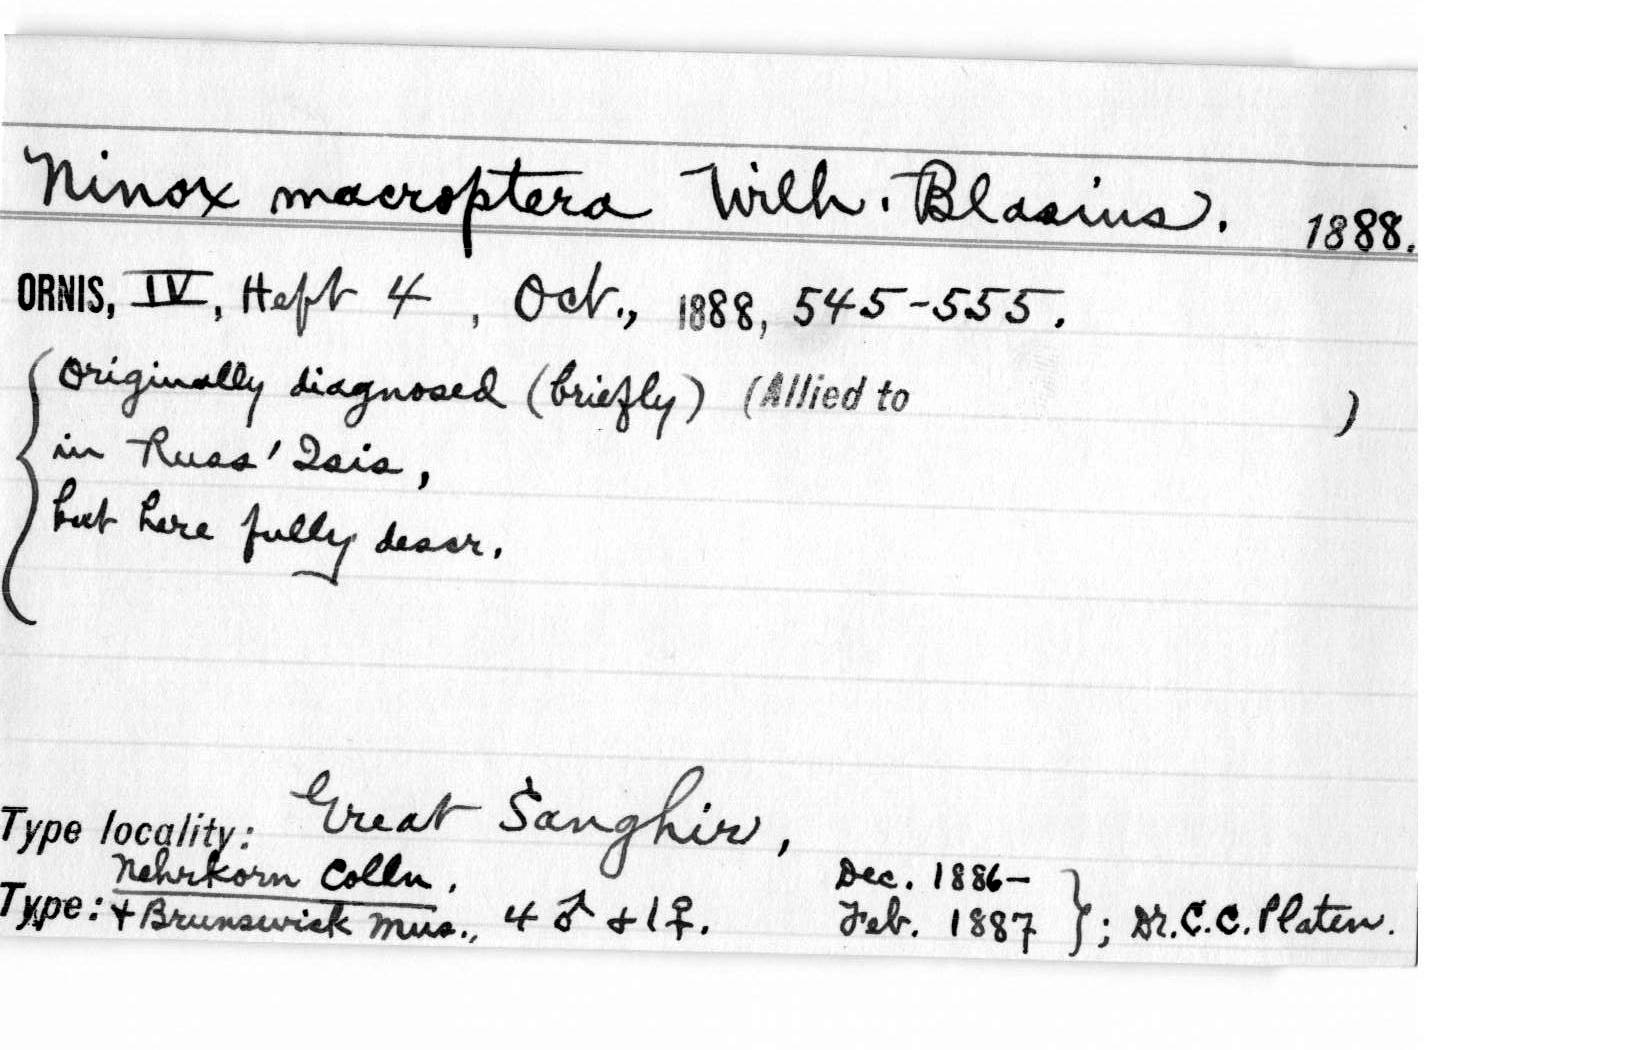 Ninox macroptera Wilh. Blasius. 1888.
ORNIS, IV, Heft 4, Oct., 1888, 545-555.
Originally diagnosed (briefly) (Allied to )
in Russ' Isis,
but here fully descr.
Type locality: Great Sanghir,
Nehrkorn Colln. Dec. 1886-
Type: + Brunswick Mus., 4 ♂ + 1 ♀. Feb. 1887 } ; Dr. C. C. Platen.